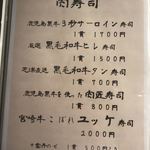 肉寿司
鹿児島黒牛3秒サーロイン寿司
1貫 1700円
厳選 黒毛和牛ヒレ寿司
1貫 1500円
芝浦直送 黒毛和牛タン寿司
1貫 700円
鹿児島黒牛を使った肉匠寿司
1貫 800円
宮崎牛こぼれユッケ寿司
2000円